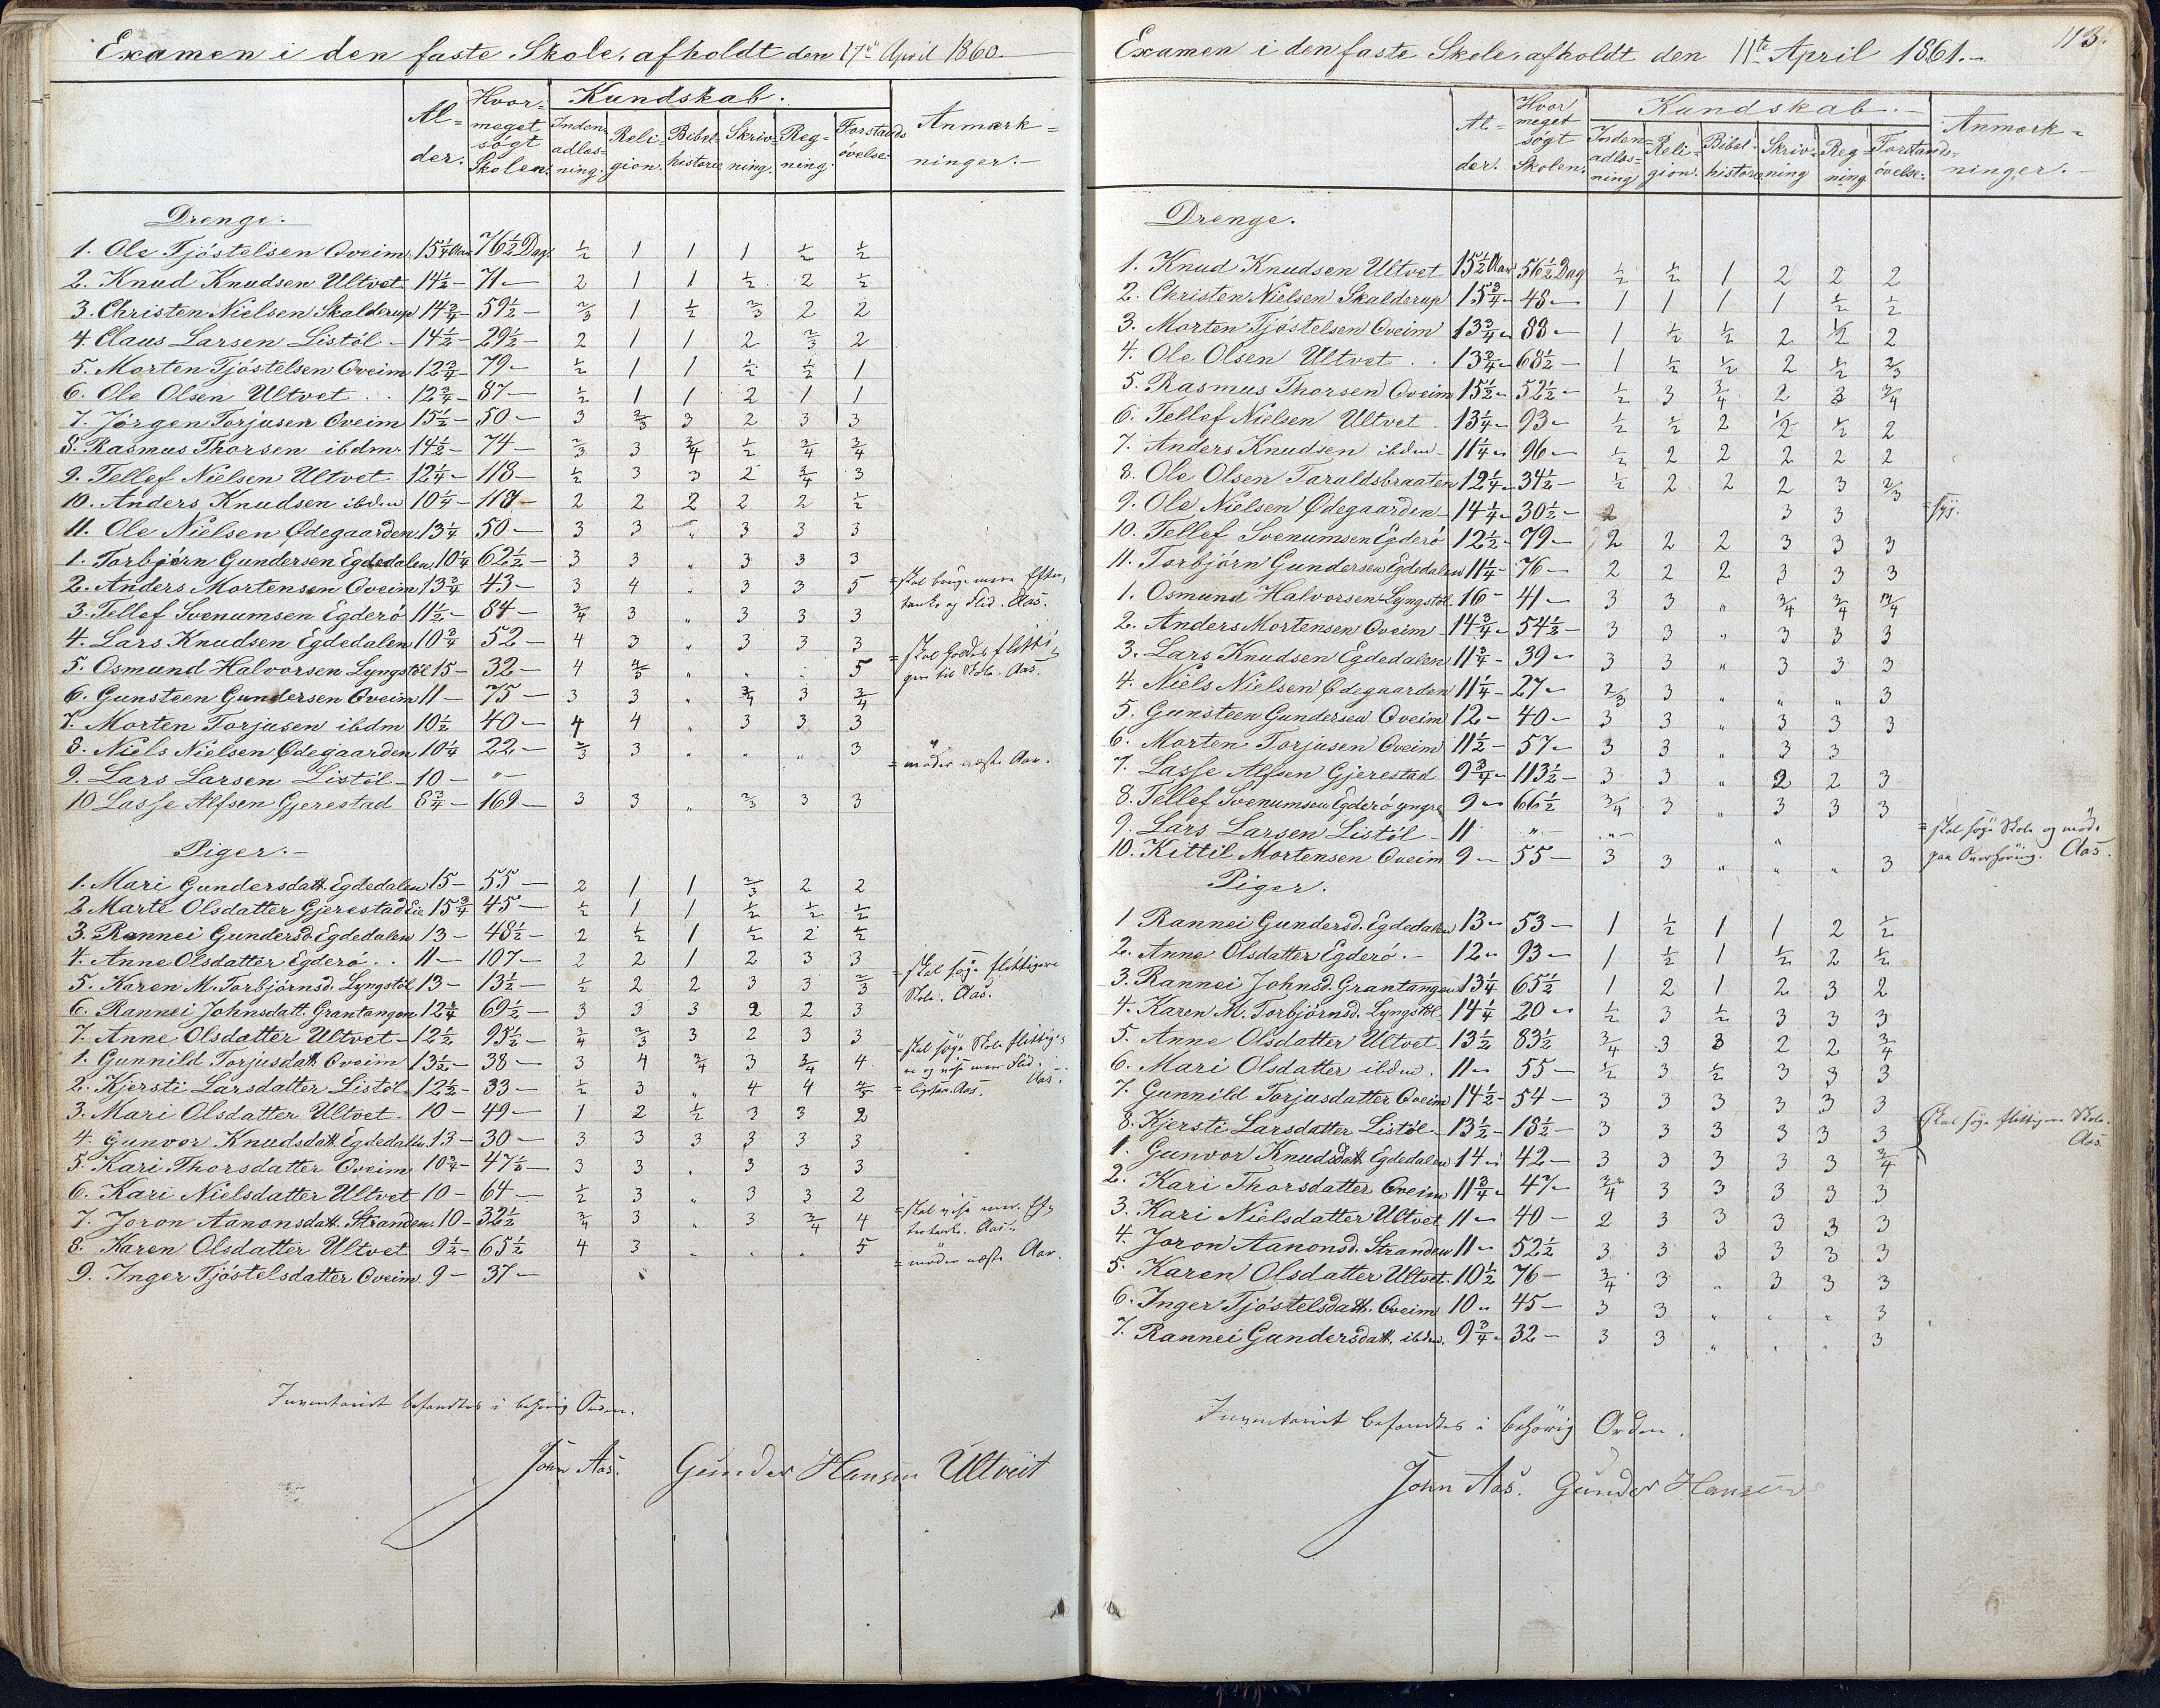 Examen i den faste Skole, afholdt den 17de April 1860.
Al-der. Hvor-meget søgt Skolen. Kundskab. Anmærk-ninger.
Inden-adlæs-ning. Reli-gion. Bibel-historie Skriv-ning. Reg-ning. Forstands øvelse
Drenge.
1. Ole Tjöstelsen Oveim 15¼ Aar 76½ Dag ½ 1 1 1 ½ ½
2. Knud Knudsen Ultvet 14½ - 71 - 2 1 1 ½ 2 ½
3. Christen Nielsen Skalderup 14¾ - 59½ - 2/3 1 ½ 2/3 2 2
4. Claus Larsen Listöl - 14½ - 29½ - 2 1 1 2 2/3 2
5. Morten Tjöstelsen Oveim 12¾ - 79 - ½ 1 1 ½ ½ 1
6. Ole Olsen Ultvet . . 12¾ - 87 - ½ 1 1 2 1 1
7. Jörgen Torjusen Oveim 15½ - 50 - 3 2/3 3 2 3 3
8. Rasmus Thorsen ibdm. 14½ - 74 - 2/3 3 3/4 ½ 3/4 3/4
9. Tellef Nielsen Ultvet 12¼ - 118 - ½ 3 3 2 3/4 3
10. Anders Knudsen ibdm 10¼ - 118 - 2 2 2 2 2 ½
11. Ole Nielsen Ødegaarden 13¼ 50 - 3 3 " 3 3 3
1. Torbjørn Gundersen Egdedalen 10¼ 62½ - 3 3 " 3 3 3
2. Anders Mortensen Oveim 13¾ 43 - 3 4 " 3 3 5 = skal bruge mere Efter-
tanke og Flid. Aas.
3. Tellef Svenumsen Egderö 11½ - 84 - 3/4 3 " 3 3 3
4. Lars Knudsen Egdedalen 10¾ 52 - 4 3 " 3 3 3
5. Osmund Halvorsen Lyngstöl 15 - 32 - 4 4/3 " " . 5 = skal holdes flitti-
gere til Skole. Aas.
6. Gunsteen Gundersen Oveim 11 - 75 - 3 3 " 3/4 3 3/4
7. Morten Torjusen ibdm 10½ 40 - 4 4 " 3 3 3
8. Niels Nielsen Ødegaarden 10¼ 22 - 2/3 3 " " " 3
9. Lars Larsen Listöl - 10 - " - = möder næste Aar.
10 Lasse Alfsen Gjerestad 8¾ - 169 - 3 3 " 2/3 3 3
Piger. -
1. Mari Gundersdatt. Egdedalen 15 - 55 - 2 1 1 2/3 2 2
2 Marte Olsdatter Gjerestad Eie 15¾ 45 - ½ 1 1 ½ ½ ½
3. Rannei Gundersd. Egdedalen 13 - 48½ - 2 ½ 1 ½ 2 ½
4. Anne Olsdatter Egderö . . 11 - 107 - 2 2 1 2 3 3
5. Karen M. Torbjörnsd. Lyngstöl 13 - 13½ - ½ 2 2 3 3 2/3 = skal søge flittigere
Skole. Aas.
6. Rannei Johnsdatt. Grantangen 12¼ 69½ - 3 3 3 2 2 3
7. Anne Olsdatter Ultvet - 12½ 95½ - 3/4 2/3 3 2 3 3
1. Gunnild Torjusdatt. Oveim 13½ - 38 - 3 4 3/4 3 3/4 4 = skal søge Skole flittige-
re og vise mere Flid. Aas.
2. Kjersti Larsdatter Listöl - 12½ - 33 - ½ 3 " 4 4 4/5 = ligesaa. Aas.
3. Mari Olsdatter Ultvet. 10 - 49 - 1 2 ½ 3 3 2
4. Gunvor Knudsdatt. Egdedalen 13 - 30 - 3 3 3 3 3 3
5. Kari Thorsdatter Oveim 10¾ - 47½ - 3 3 . 3 3 3
6. Kari Nielsdatter Ultvet 10 - 64 - ½ 3 " 3 3 2
7. Joron Aanonsdatt. Stranden. 10 - 32½ 3/4 3 " 3 3/4 4 = skal vise mere Ef-
tertanke. Aas.
8. Karen Olsdatter Ultvet 9½ - 65½ 4 3 . . . 5
9. Inger Tjöstelsdatter Oveim. 9 - 37 - = möder næste Aar.
Inventariet befandtes i behørig Orden.
John Aas. Gunder Hansen Ultveit
113.
Examen i den faste Skole, afholdt den 11te April 1861. -
Al-der. Hvor meget søgt Skolen. Kundskab. - Anmærk-ninger. -
Inden-adlæs-ning Reli-gion. Bibel-historie Skriv-ning Reg-ning. Forstands-øvelse.
Drenge.
1. Knud Knudsen Ultvet 15½ Aar 56½ Dag ½ ½ 1 2 2 2
2. Christen Nielsen Skalderup 15¾ - 48 - 1 1 1 1 ½ ½
3. Morten Tjöstelsen Oveim 13¾ - 88 - 1 ½ ½ 2 ½ 2
4. Ole Olsen Ultvet . . 13¾ - 68½ - 1 ½ ½ 2 ½ 2/3
5. Rasmus Thorsen Oveim 15½ - 52½ - ½ 3 3/4 2 3 3/4
6. Tellef Nielsen Ultvet. 13¼ - 93 - ½ ½ 2 ½ ½ 2
7. Anders Knudsen ibdm - 11¼ - 96 - ½ 2 2 2 2 2
8. Ole Olsen Taraldsbraaten 12¼ - 34½ - ½ 2 2 2 3 2/3
9. Ole Nielsen Ødegaarden - 14¼ - 30½ - 2 3 3
10. Tellef Svenumsen Egderö 12½ - 79 - 2 2 2 3 3 3
11. Torbjörn Gundersen Egdedalen 11¼ - 76 - 2 2 2 3 3 3
1. Osmund Halvorsen Lyngstöl. 16 - 41 - 3 3 " 3/4 3/4 3/4
2. Anders Mortensen Oveim - 14¾ - 54½ - 3 3 " 3 3 3
3. Lars Knudsen Egdedalen 11¾ - 39 - 3 3 " 3 3 3
4. Niels Nielsen Ødegaarden 11¼ - 27 - 2/3 3 " " " 3
5. Gunsteen Gundersen Oveim 12 - 40 - 3 3 " 3 3 3
6. Morten Torjusen Oveim 11½ - 57 - 3 3 " 3 3
7. Lasse Alfsen Gjerestad 9¾ - 113½ - 3 3 " 2 2 3
8. Tellef Svenumsen Egderö yngre 9 - 66½ 3/4 3 " 3 3 3
9. Lars Larsen Listöl - 11 " - " - " = skal søge Skole og møde
paa Overhøring. Aas.
10. Kittil Mortensen Oveim 9 - 55 - 3 3 " " " 3
Piger.
1 Rannei Gundersd. Egdedalen 13 - 53 - 1 ½ 1 1 2 ½
2. Anne Olsdatter Egderö. - 12 - 93 - 1 ½ 1 ½ 2 ½
3. Rannei Johnsd. Grantangen 13¼ 65½ 1 2 1 2 3 2
4. Karen M. Torbjörnsd. Lyngstöl 14¼ 20 - ½ 3 ½ 3 3 3
5. Anne Olsdatter Ultvet. 13½ 83½ 3/4 3 3 2 2 3/4
6. Mari Olsdatter ibdm. 11 - 55 - ½ 3 ½ 3 3 3
7. Gunnild Torjusdatter Oveim 14½ - 54 - 3 3 3 3 3 3
8. Kjersti Larsdatter Listöl - 13½ - 18½ - 3 3 3 3 3 3 skal søge flittigere Skole.
Aas
1. Gunvor Knudsdatt. Egdedalen 14 - 42 - 3 3 3 3 3 3/4
2. Kari Thorsdatter Oveim 11¾ - 47 - 3/4 3 3 3 3 3
3. Kari Nielsdatter Ultvet 11 - 40 - 2 3 3 3 3 3
4. Joron Aanonsd. Stranden 11 - 52½ 3 3 3 3 3 3
5. Karen Olsdatter Ultvet. 10½ 76 - 3/4 3 " 3 3 3
6. Inger Tjöstelsdatt. Oveim 10 - 45 - 3 3 " " " 3
7. Rannei Gundersdatt. ibdm. 9¾ - 32 - 3 3 " " " 3
Inventariet befandtes i behörig Orden.
John Aas. Gunder Hansen